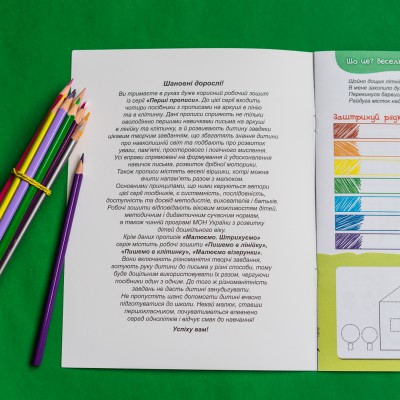 Шановні дорослі!
Ви тримаєте в руках дуже корисний робочий зошит
із серії «Перші прописи». До цієї серії входить
чотири посібники з прописами на аркуші в лінію
та в клітинку. Дані прописи сприяють не тільки
оволодінню першими навичками письма на аркуші
в лінійку та клітинку, а й розвивають дитину завдяки
цікавим творчим завданням, що збагатять знання дитини
про навколишній світ та подбають про розвиток
уваги, пам'яті, просторового і логічного мислення.
Усі вправи спрямовані на формування й удосконалення
навичок письма, розвиток дрібної моторики.
Також прописи містять веселі віршики, котрі можна
вчити напам'ять разом з малюком.
Основними принципами, що ними керуються автори
цієї серії посібників, є системність, послідовність,
доступність та досвід методистів, вихователів і батьків.
Робочі зошити відповідають віковим можливостям дітей,
методичним і дидактичним сучасним нормам,
а також чинній програмі МОН України з розвитку
дітей дошкільного віку.
Крім даних прописів «Малюємо. Штрихуємо»
серія містить робочі зошити «Пишемо в лінійку»,
«Пишемо в клітинку», «Малюємо візерунки».
Вони включають різноманітні творчі завдання,
готують руку дитини до письма у різні способи, тому
буде доцільним використовувати їх разом, чергуючи
посібники один з одним. До того ж різноманітність
завдань не дасть дитині занудьгувати.
Не пропустіть шанс допомогти дитині вчасно
підготуватися до школи. Нехай малюк, ставши
першокласником, почуватиметься впевнено
серед однолітків і відчує смак до навчання!
Успіху вам!
Що це? Весел
Щойно дощик літній
В мене захопило ду
Перекинула барвис
Райдуга місток над
Заштрихуй рядк